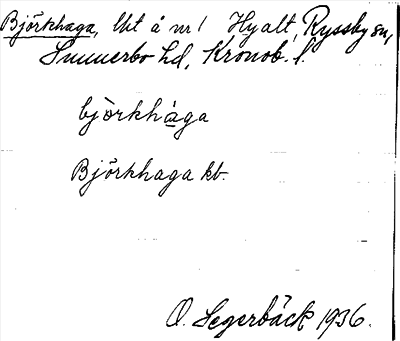 Björkhaga, lht å nr 1 Hyalt, Ryssby sn,
Sunnerbo hd, Kronob. l.
bjòrkhàga
Björkhaga kb.
O. Segerbäck 1936.